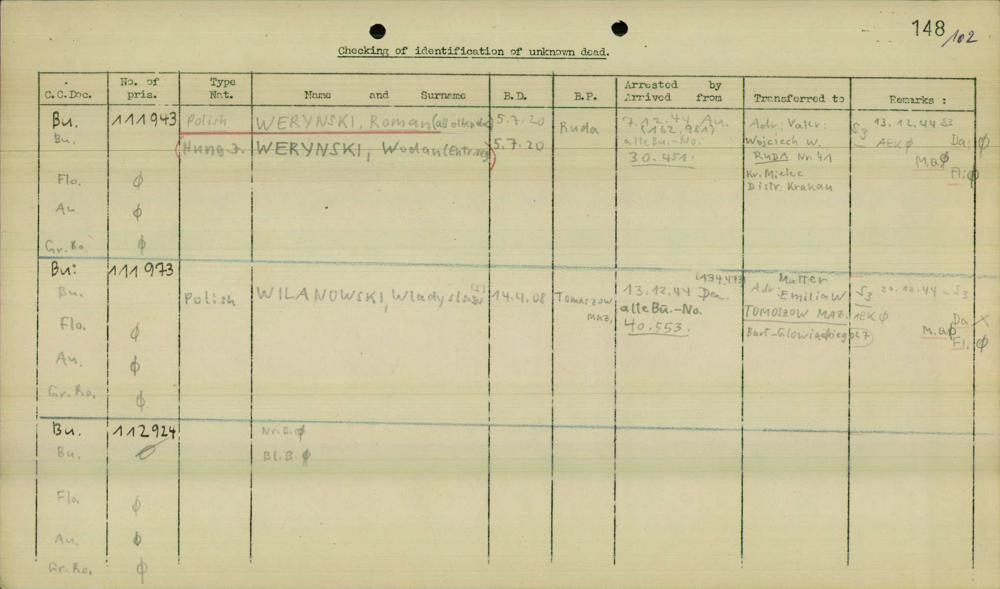 148
/102
Checking of identification of unknown dead.
C.C.Doc. No. of pris. Type Nat. Name and Surname B.D. B.P. Arrested by Arrived from Transferred to Remarks :
Bu. 111943 Polish WERYNSKI, Roman (all other doc) 5.7.20 Ruda 7.12.44 Au. Adr. Vater: S3 13.12.44 S3
(162.951)
Bu. (Hung J. WERYNSKI, Wodan (Entr.reg) 5.7.20 alle Bu.-No. Wojciech W. AEK ϕ Da: ϕ
30.451. RUDA Nr. 41 M.a ϕ
Flo. ϕ Kr. Mielec Fl: ϕ
Distr. Krakau
Au. ϕ
Gr.Ro. ϕ
Bu: 111973
Bu. Polish WILANOWSKI, Wladyslaw 14.4.08 Tomaszow maz. 13.12.44 Da. (134.473) Adr: Mutter Emilia W S3 20.12.44 – S3
alle Bu.-No. TOMOSZOW MAZ. AEK ϕ Da X
Flo. ϕ 40.553. Bart-Glowia M.a ϕ
Fl: ϕ
Au. ϕ
Gr.Ro. ϕ
Bu. 112924 Nr.B. ϕ
Bu. ϕ Bl.B. ϕ
Flo. ϕ
Au. ϕ
Gr.Ro. ϕ